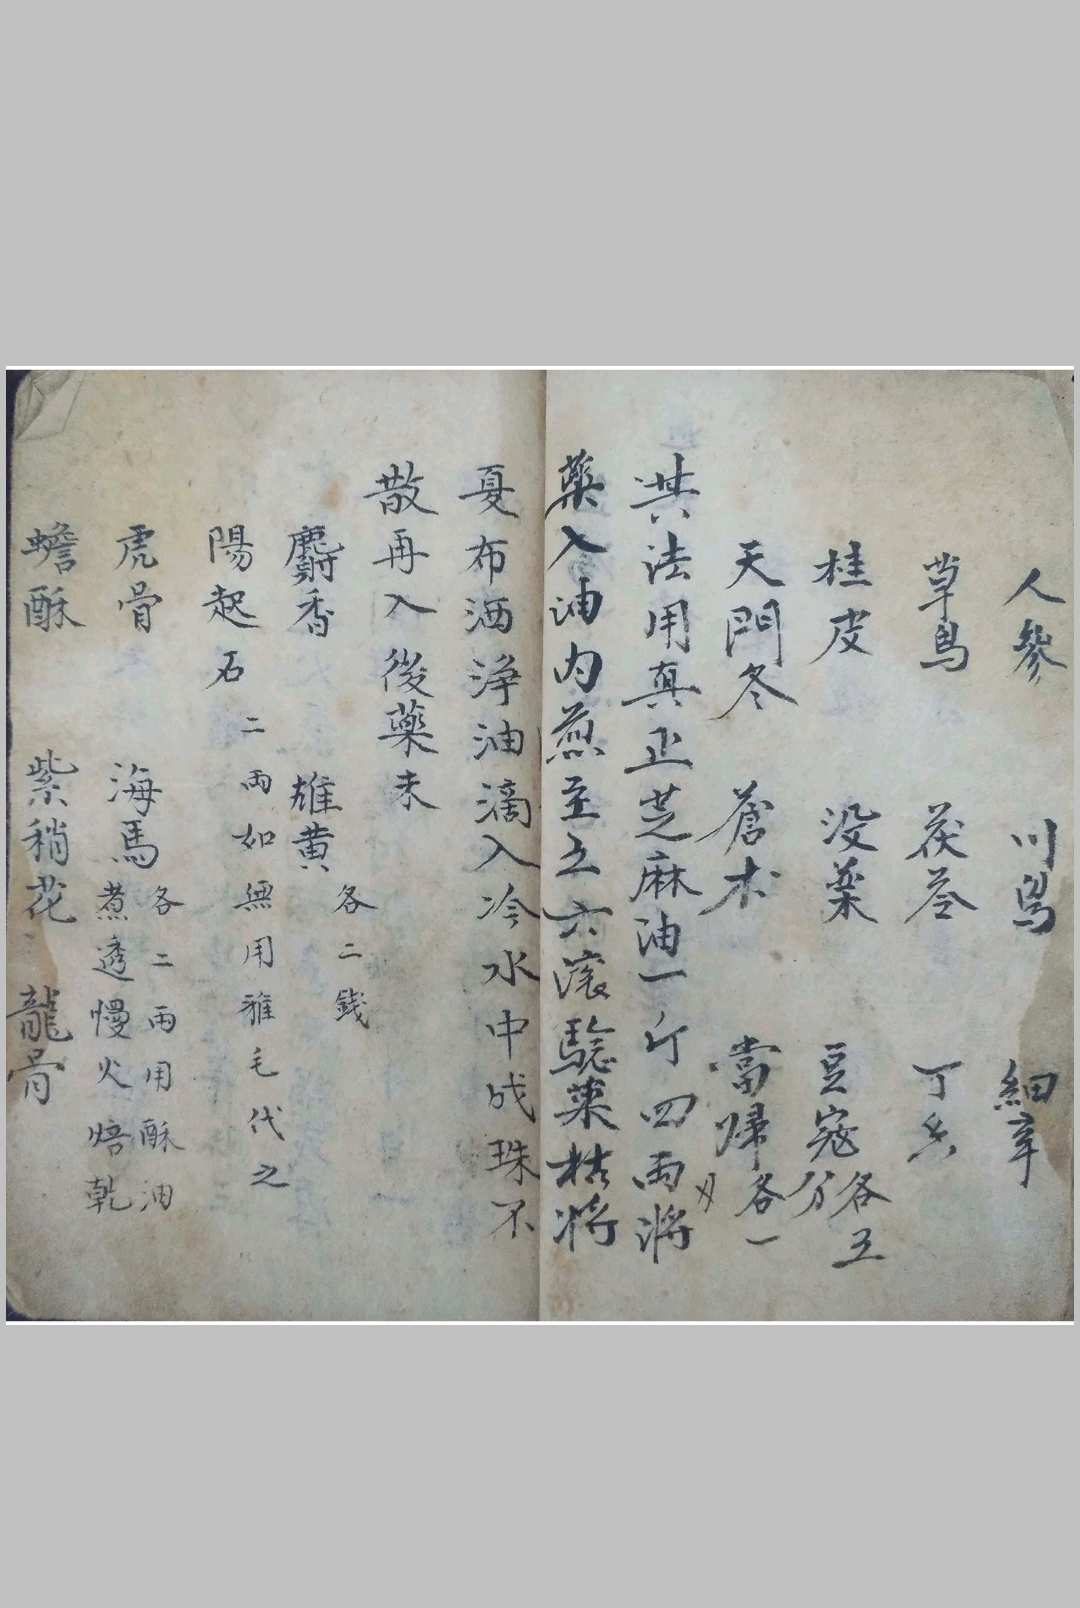 人參 川烏 細辛
草烏 茯苓 丁香
桂皮 没藥 豆蔻各五分
天門冬 蒼术 當歸各一刄
其法用真正芝麻油一斤四兩將
藥入油内煎至五六滚騐藥枯將
夏布洒淨油滴入冷水中成珠不
散再入後藥末
麝香 雄黄各二錢
陽起石二兩如無用雅毛代之
虎骨 海馬各二兩用酥油煮透慢火焙乾
蟾酥 紫稍花 龍骨